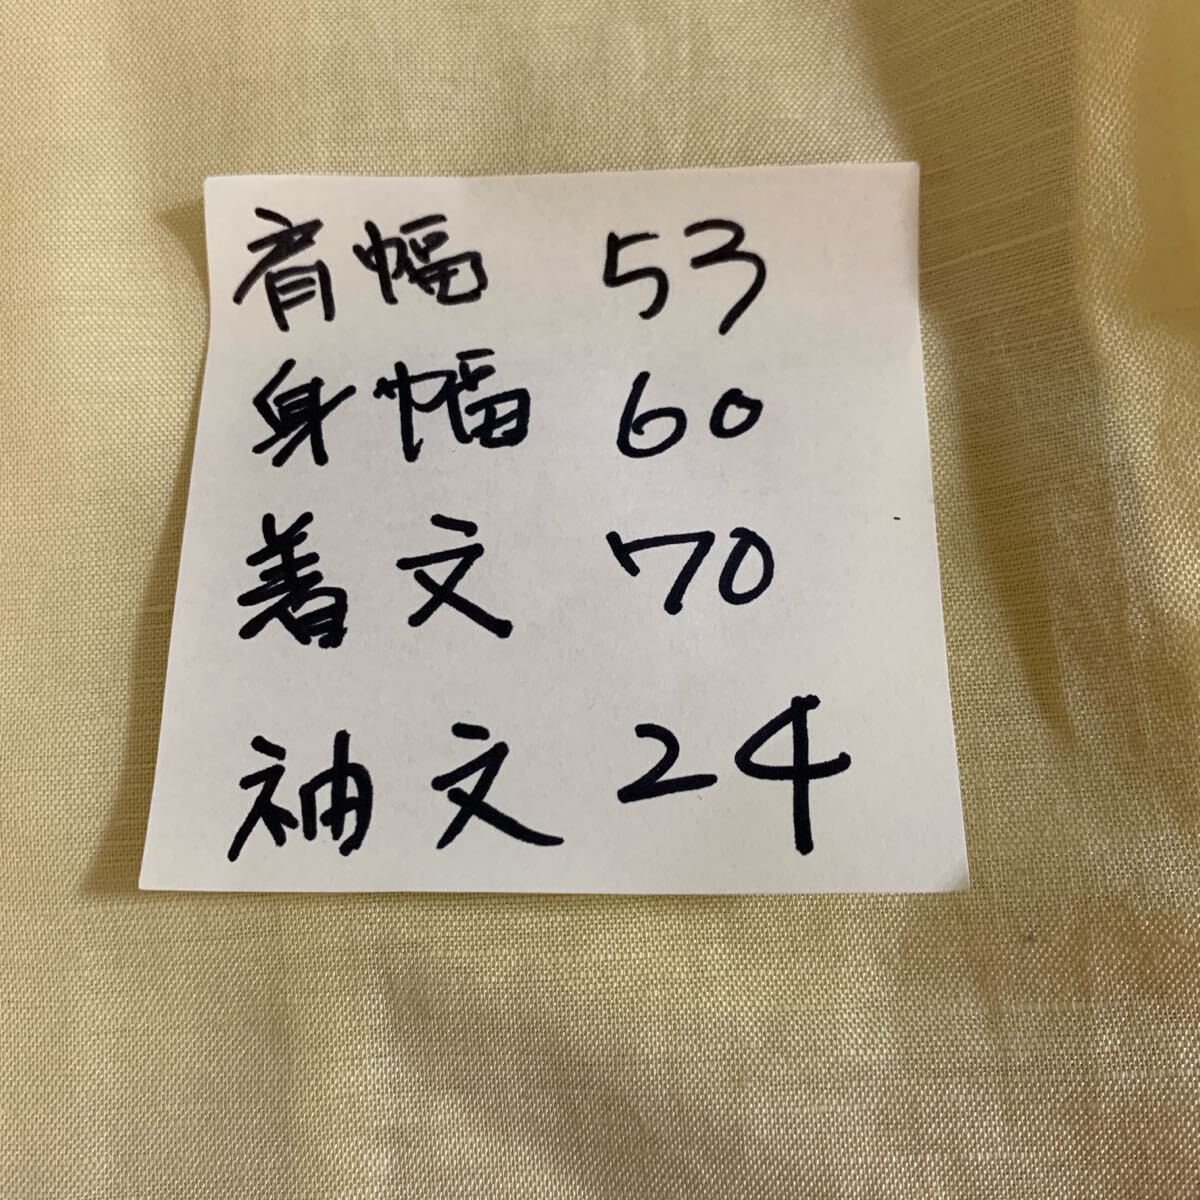 肩幅 53
身幅 60
着文 70
袖文 24